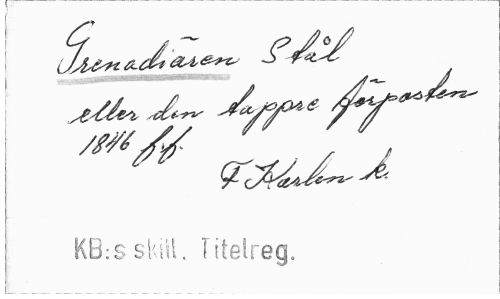 Grenadiären Stål
eller den tappre förposten
1846 ff.
F Karlen k.
KB:s skill. Titelreg.